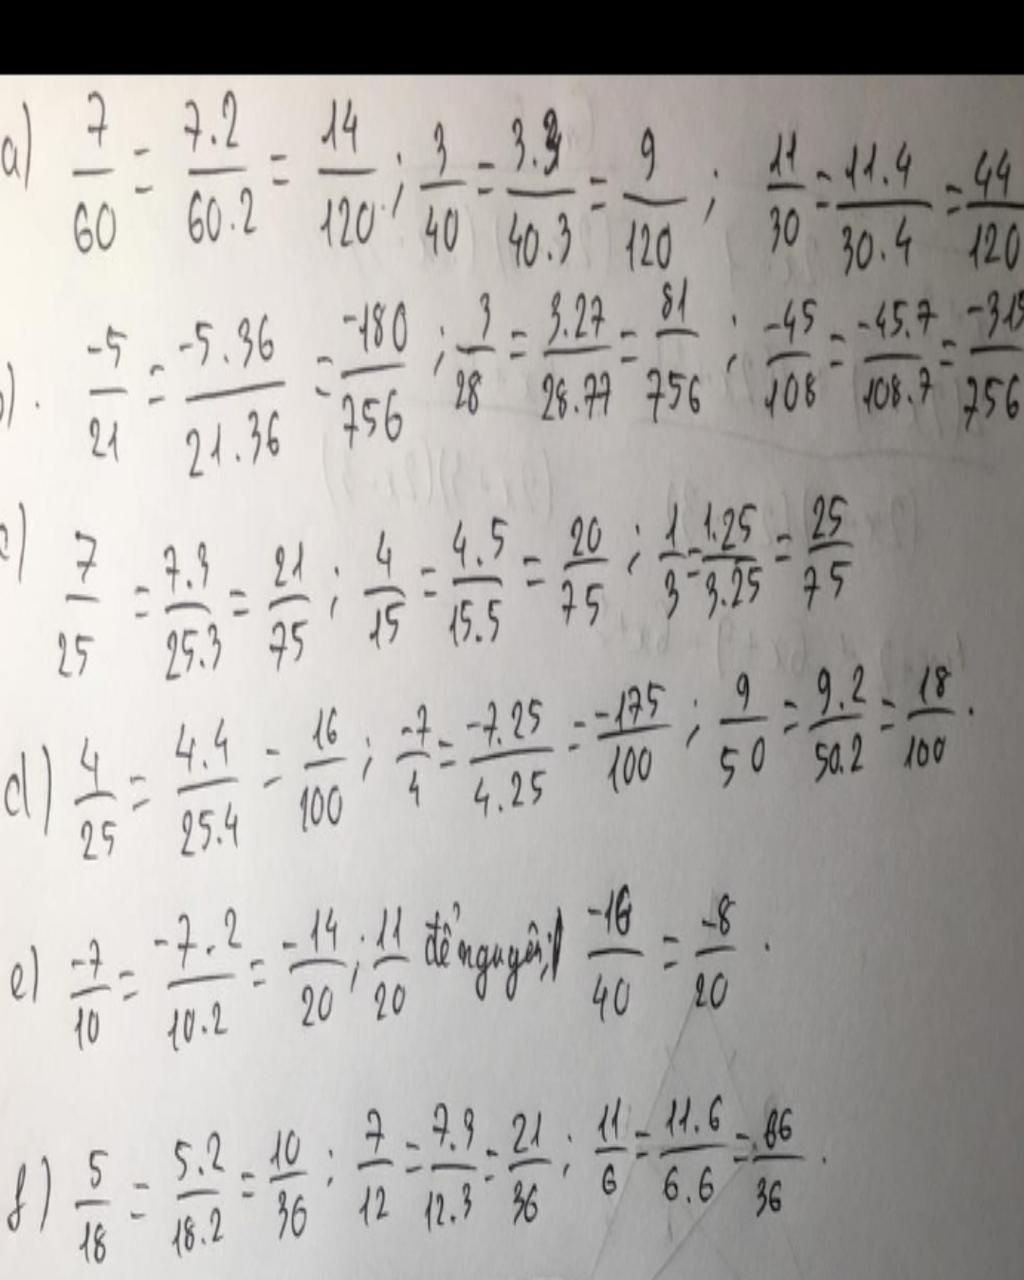 a) 7/60 = 7.2/60.2 = 14/120 ; 3/40 = 3.3/40.3 = 9/120 ; 11/30 = 11.4/30.4 = 44/120
b). -5/21 = -5.36/21.36 = -180/756 ; 3/28 = 3.27/28.77 = 81/756 ; -45/108 = -45.7/108.7 = -315/756
c) 7/25 = 7.3/25.3 = 21/75 ; 4/15 = 4.5/15.5 = 20/75 ; 1/3 = 1.25/3.25 = 25/75
d) 4/25 = 4.4/25.4 = 16/100 ; -7/4 = -7.25/4.25 = -175/100 ; 9/50 = 9.2/50.2 = 18/100 .
e) -7/10 = -7.2/10.2 = -14/20 ; 11/20 để nguyên; -16/40 = -8/20 .
f) 5/18 = 5.2/18.2 = 10/36 ; 7/12 = 7.3/12.3 = 21/36 ; 11/6 = 11.6/6.6 = 66/36 .